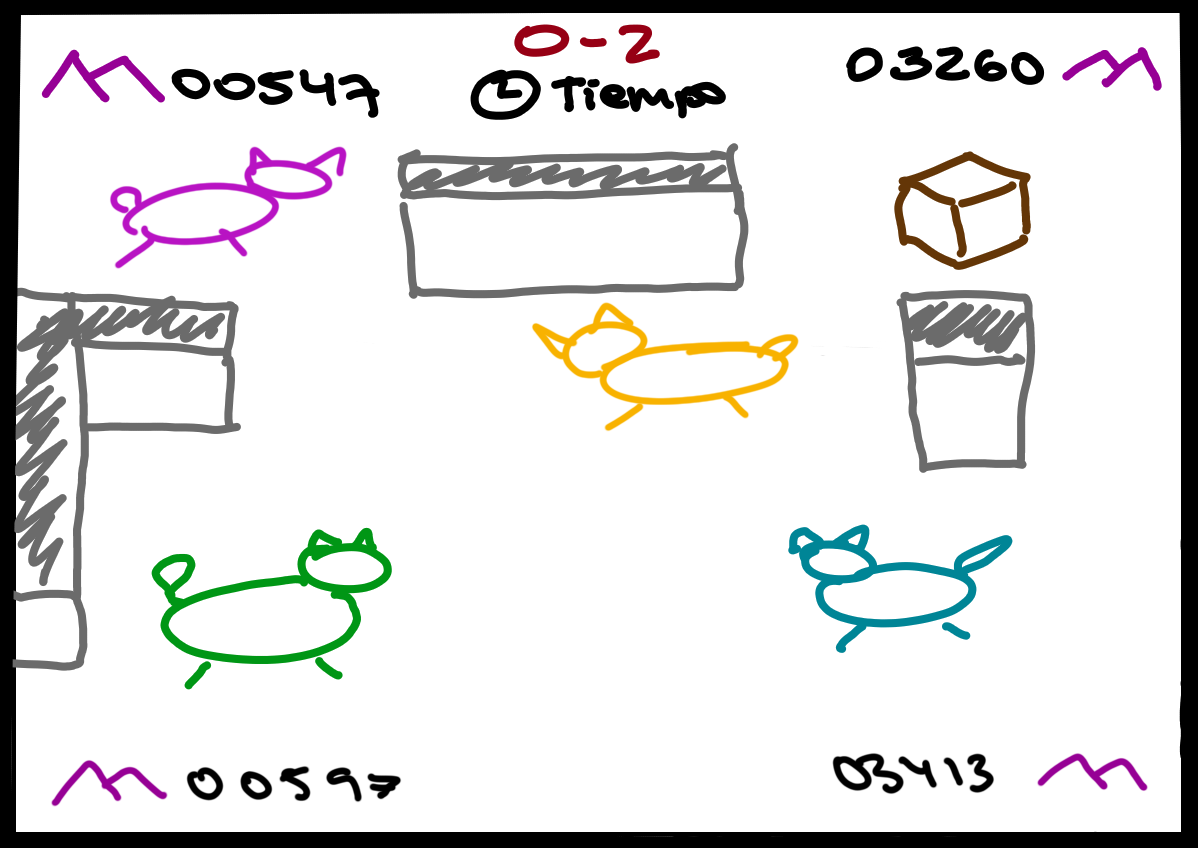 0-2
00547
Tiempo
03260
00597
03413